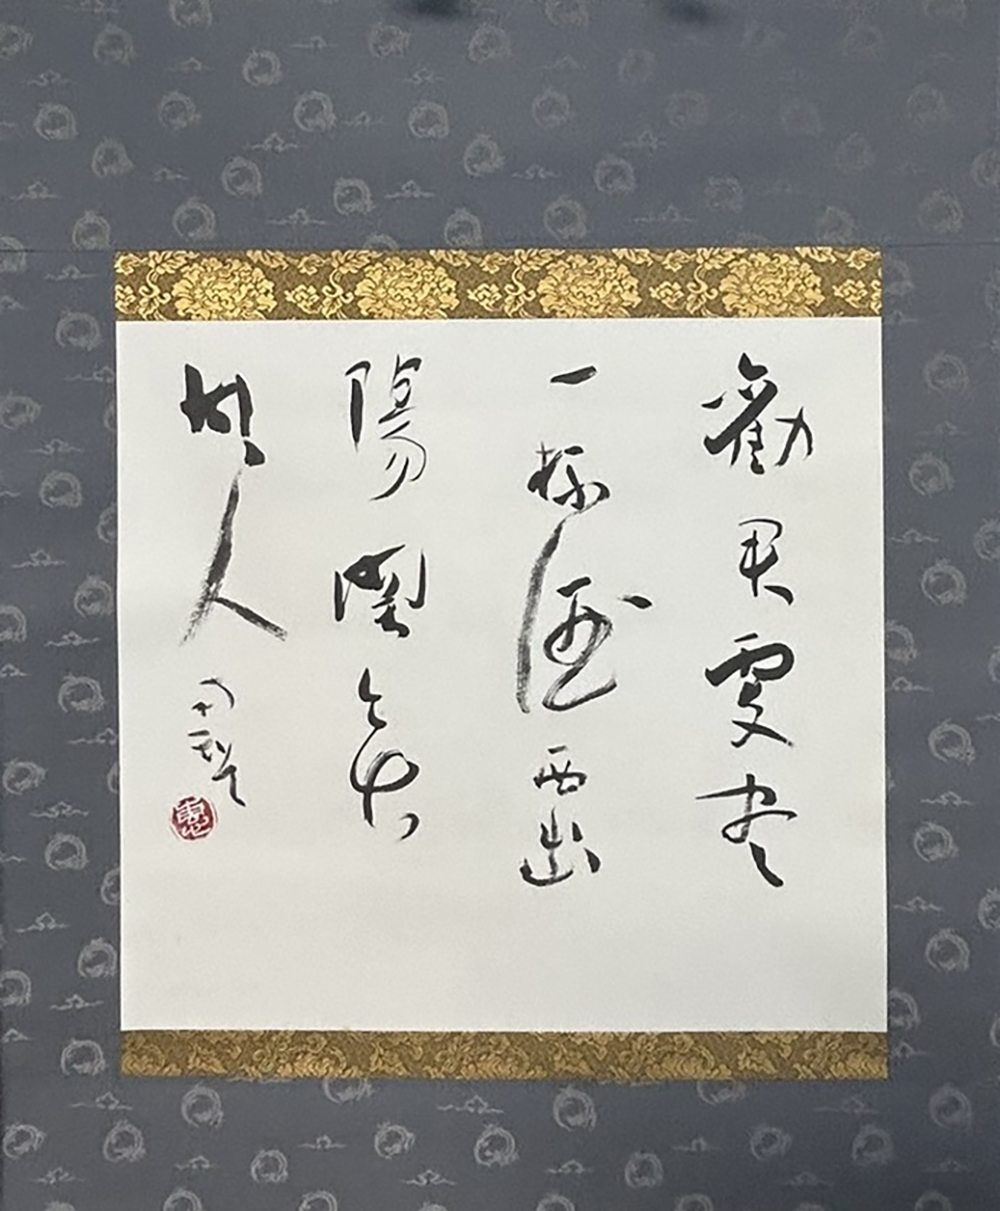 勸君更尽
一杯酒西出
陽関無
故人